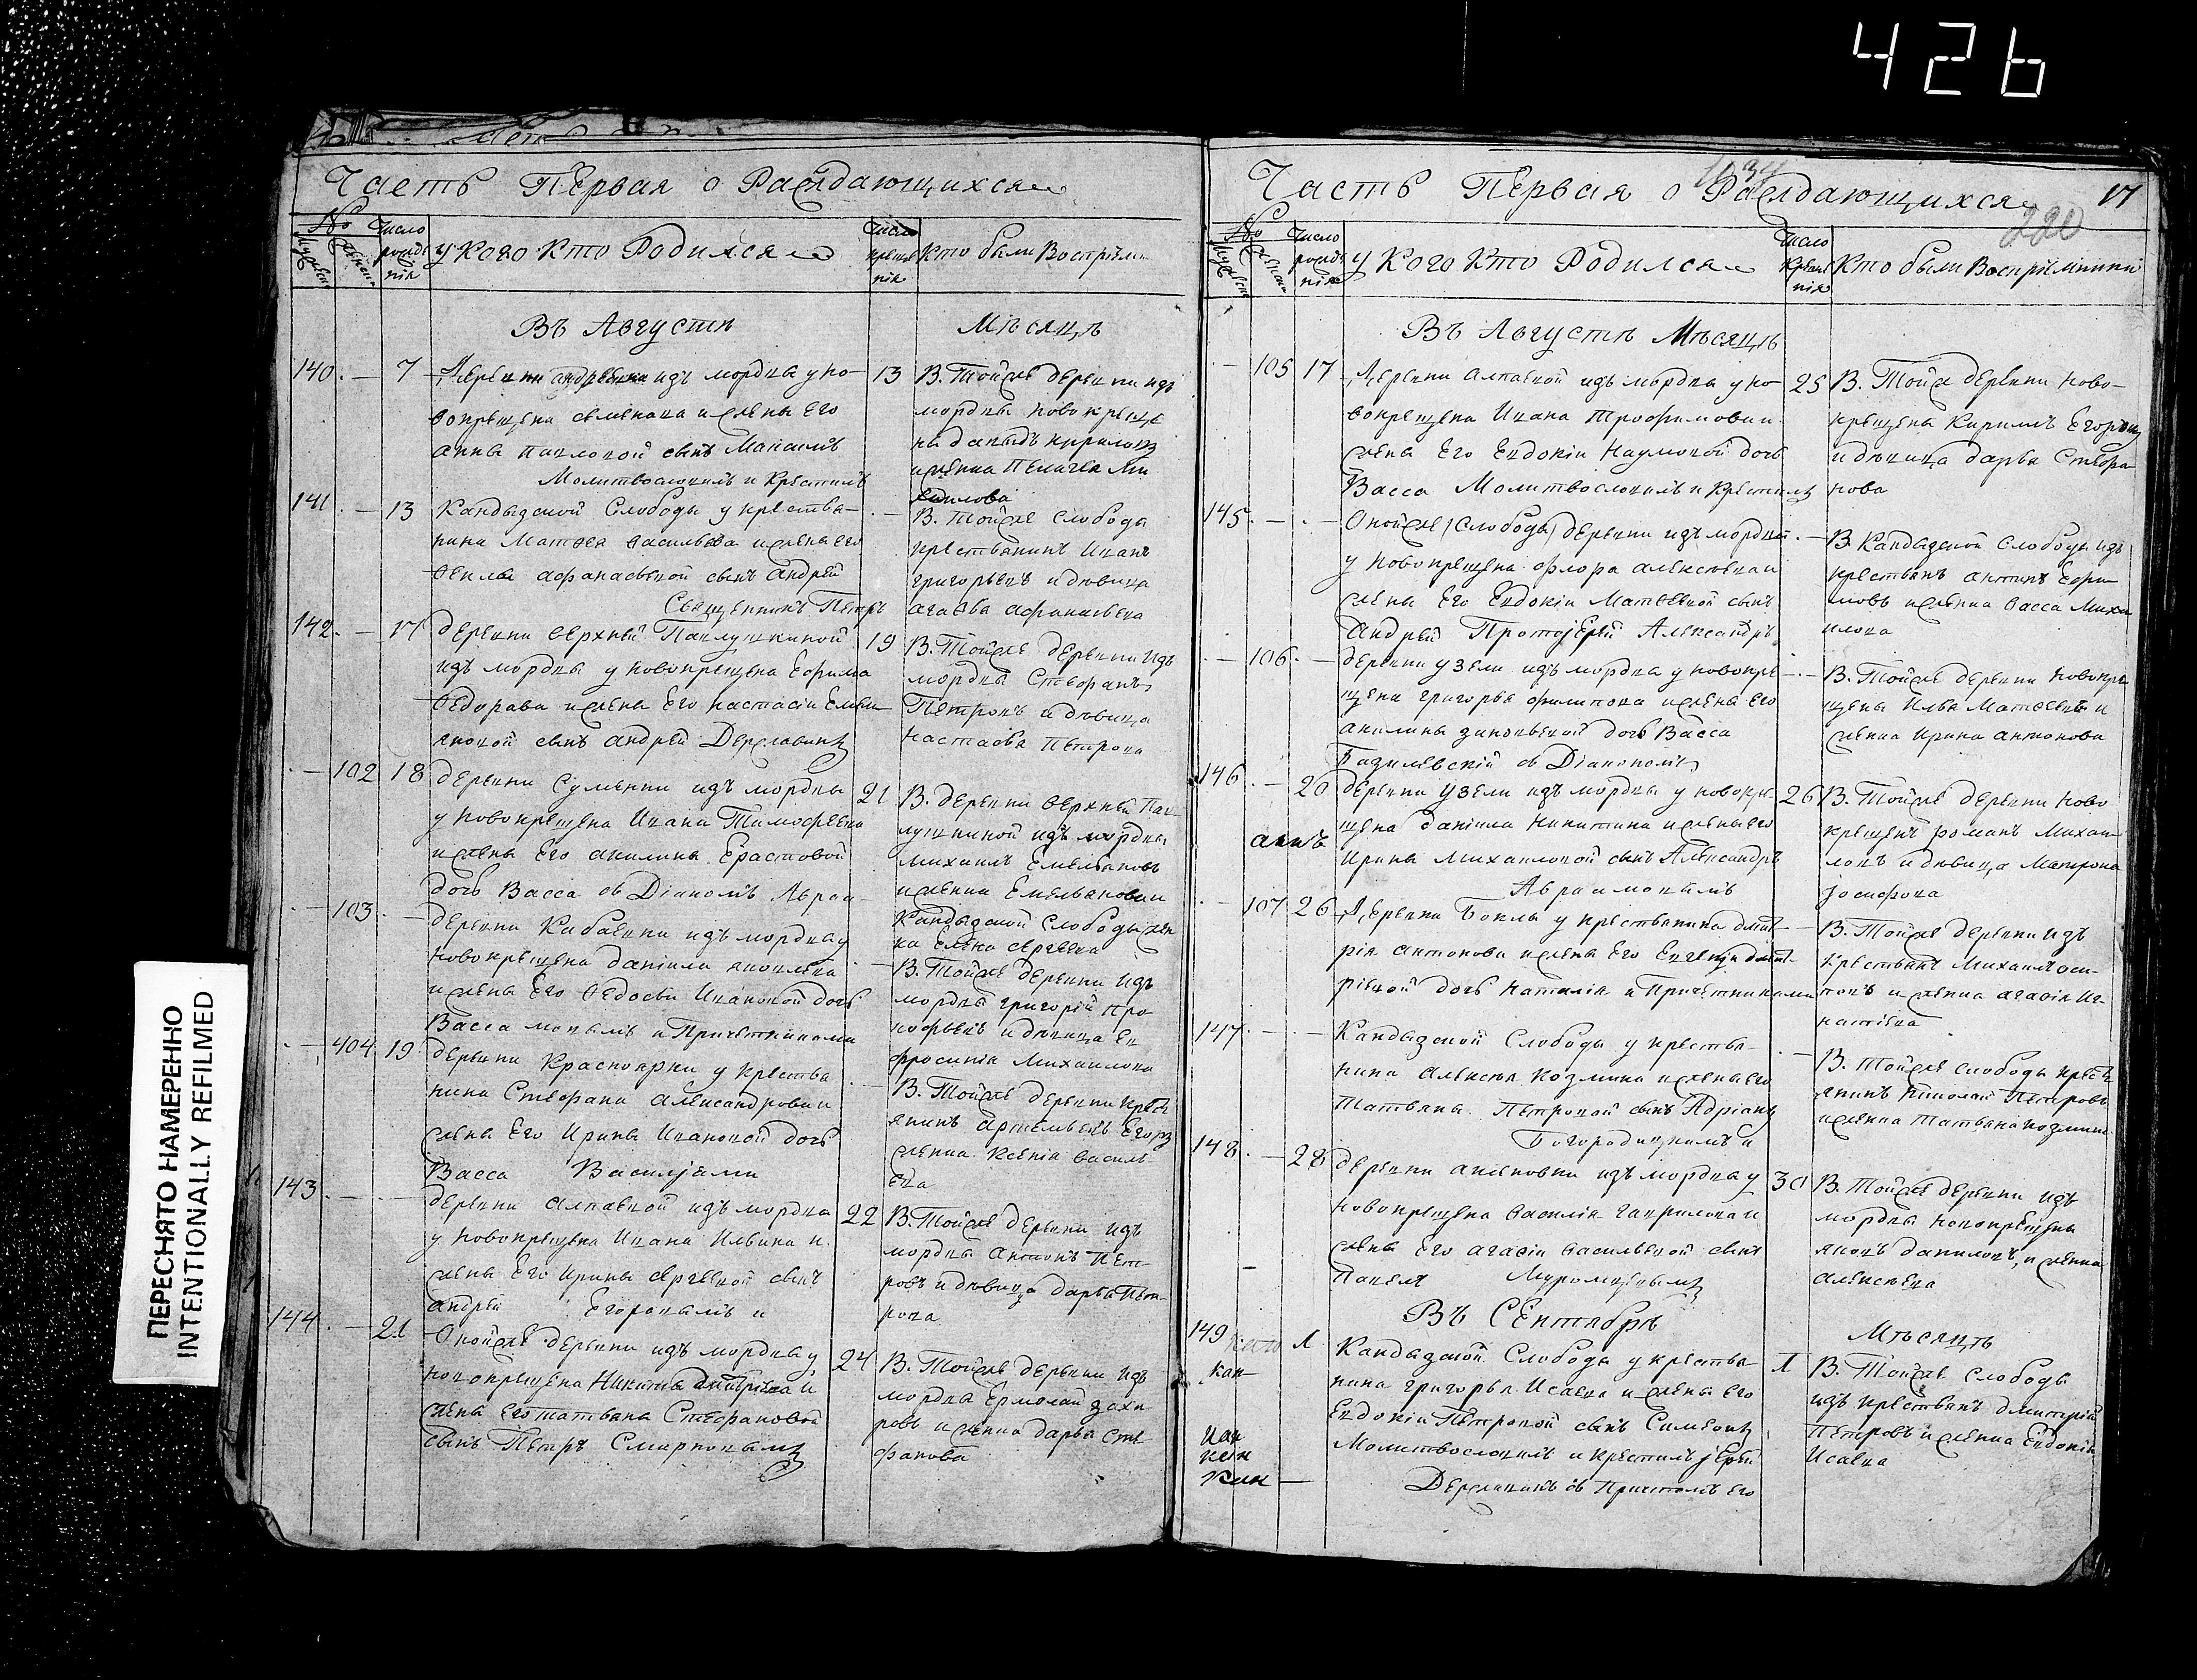 426
Часть Первая о Раждающихся
№
Мужеска
Женска
Число рожденія
у Кого Кто Родился
Число крещенія
Кто были Воспріем
Въ Августѣ
Мѣсяцѣ
140 7 Деревни андреевки изъ мордвы у но-
вокрещена семенова и жены его
анны Павловой сынъ Максимъ
Молитвословилъ и Крестилъ
13 В. Тойже деревни изъ
мордвы новокреще
нъ давыдъ кириловъ
и женка Пелагея Ми
хаилова
141 13 Кандызской Слободы у крестья-
нина Матвея Васильева и жены его
Феклы афанасьевой сынъ андрей
Священникъ Петръ
В. Тойже слободы
крестьянинъ Иванъ
григорьевъ и дѣвица
агафья афанасьева
142 17 деревни верхней Павлушкиной
изъ мордвы у новокрещена Ефима
Федорава и жены Его настасіи Емель
яновой сынъ андрей Державинъ
19 В. Тойже деревни изъ
мордвы Стефанъ
Петровъ и дѣвица
настасья Петрова
102 18 деревни Сумкины изъ мордвы
у новокрещена Ивана Тимофеева
и жены Его акилины Ерастовой
дочь Васса съ Діакомъ Авраа-
21 В. деревни верхней Пав-
лушкиной изъ мордвы
Михаилъ Емельяновъ
и женка Емельянова и
Кандызской слободы жен
ка Елена сергеева
103 деревни Кабаевки изъ мордвы у
новокрещена даніила яковлева
и жены Его Федосьи Ивановой дочь
Васса мовымъ и Причетниками
В. Тойже деревни изъ
мордвы григорій про
кофьевъ и дѣвица Ев
фросинія Михаилова
404 19 деревни Красноярки у крестья
нина Стефана александрова и
жены Его Ирины Ивановой дочь
Васса Васильями
В. Тойже деревни крестья
янинъ артемьевъ Егоръ
женка Ксенія василь
ева
143 деревни алпаевой изъ мордвы
у новокрещена Ивана Ильина и
жены Его Ирины сергеевой сынъ
андрей Егоровымъ и
22 В. Тойже деревни изъ
мордвы антонъ Пет-
ровъ и дѣвица дарья Пет-
рова
144 21 Онойже деревни изъ мордвы у
новокрещена Никиты дмитріева и
жены Его татьяны Стефановой
сынъ Петръ Смирновымъ
24 В. Тойже деревни изъ
мордвы Ермолай заха
ровъ и женка дарья Сте
фанова
Часть Первая о Раждающихся
17
220
№
Мужеска
Женска
Число рожденія
у Кого Кто Родился
Число Крещенія
Кто были Воспріемники
Въ Августѣ Мѣсяцѣ
105 17 Деревни алпаевой изъ мордвы у но-
вокрещена Ивана Трофимова и
жены Его Евдокіи Наумовой дочь
Васса Молитвословилъ и Крестилъ
25 В. Тойже деревни ново-
крещена Кирилъ Егоровъ
и дѣвица дарья Стефа
нова
145 Онойже (слободы) деревни изъ мордвы
у новокрещена флора алексеева и
жены Его Евдокіи Матвеевой сынъ
андрей Протоіерей Александръ
В. Кандызской слободы изъ
крестьянъ антипъ Ефи-
мовъ и женка васса Миха
илова
106 деревни узели изъ мордвы у новокре
щена григорья филипова и жены его
акилины зиновьевой дочь Васса
Базилевскій съ Діакономъ
В. Тойже деревни новокре
щены Илья Матвеевъ и
женка Ирина антонова
146 20 деревни узели изъ мордвы у новокре
щена даніила никитина и жены его
Ирины михаиловой сынъ Александръ
Авраамовымъ
26 В. Тойже деревни ново
крещенъ романъ Михаи-
ловъ и дѣвица Матрона
Іосифова
107 26 Деревни Боклы у крестьянина дмит-
рія антонова и жены Его Евгеніи дмит-
ріевой дочь Наталія и Причетниками
В. Тойже деревни изъ
крестьянъ Михаилъ оси-
повъ и женка агафія иг-
натіева
147 Кандызской Слободы у крестья-
нина алексея козмина и жены его
Татьяны Петровой сынъ Адріанъ
Богородицкимъ и
В. Тойже слободы крестья
янинъ Николай Петровъ
и женка татьяна козмина
148 28 деревни аксеновки изъ мордвы у
новокрещена василія гаврилова и
жены Его агафіи васильевой сынъ
Павелъ Муромцевымъ
30 В. Тойже деревни изъ
мордвы новокрещены
яковъ даниловъ, и женка
алексеева
Въ Сентябрѣ
Мѣсяцѣ
149 1 Кандызской Слободы у крестья-
нина григорья Исаева и жены его
Евдокіи Петровой сынъ Симеонъ
Молитвословилъ и крестилъ іерей
Державинъ съ Причтомъ Его
1 В. Тойже слободы
изъ крестьянъ дмитрій
Петровъ и женка Евдокія
Исаева
ПЕРЕСНЯТО НАМЕРЕННО
INTENTIONALLY REFILMED